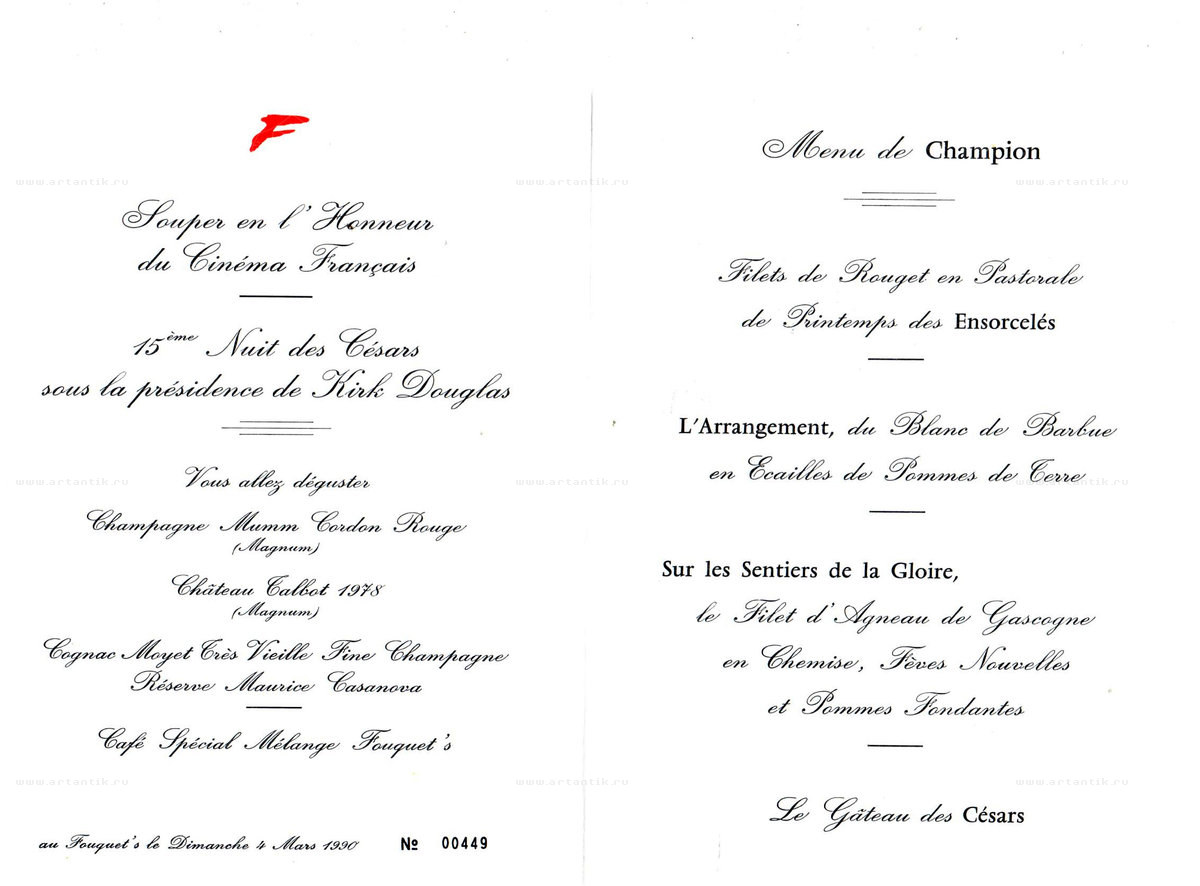 F
Souper en l'Honneur
du Cinéma Français
15ème Nuit des Césars
sous la présidence de Kirk Douglas
Vous allez déguster
Champagne Mumm Cordon Rouge
(Magnum)
Château Talbot 1978
(Magnum)
Cognac Moyet Très Vieille Fine Champagne
Réserve Maurice Casanova
Café Spécial Mélange Fouquet's
au Fouquet's le Dimanche 4 Mars 1990 Nº 00449
Menu de Champion
Filets de Rouget en Pastorale
de Printemps des Ensorcelés
L'Arrangement, du Blanc de Barbue
en Ecailles de Pommes de Terre
Sur les Sentiers de la Gloire,
le Filet d'Agneau de Gascogne
en Chemise, Fèves Nouvelles
et Pommes Fondantes
Le Gâteau des Césars
www.artantik.ru www.artantik.ru www.artantik.ru
www.artantik.ru www.artantik.ru www.artantik.ru
www.artantik.ru www.artantik.ru www.artantik.ru